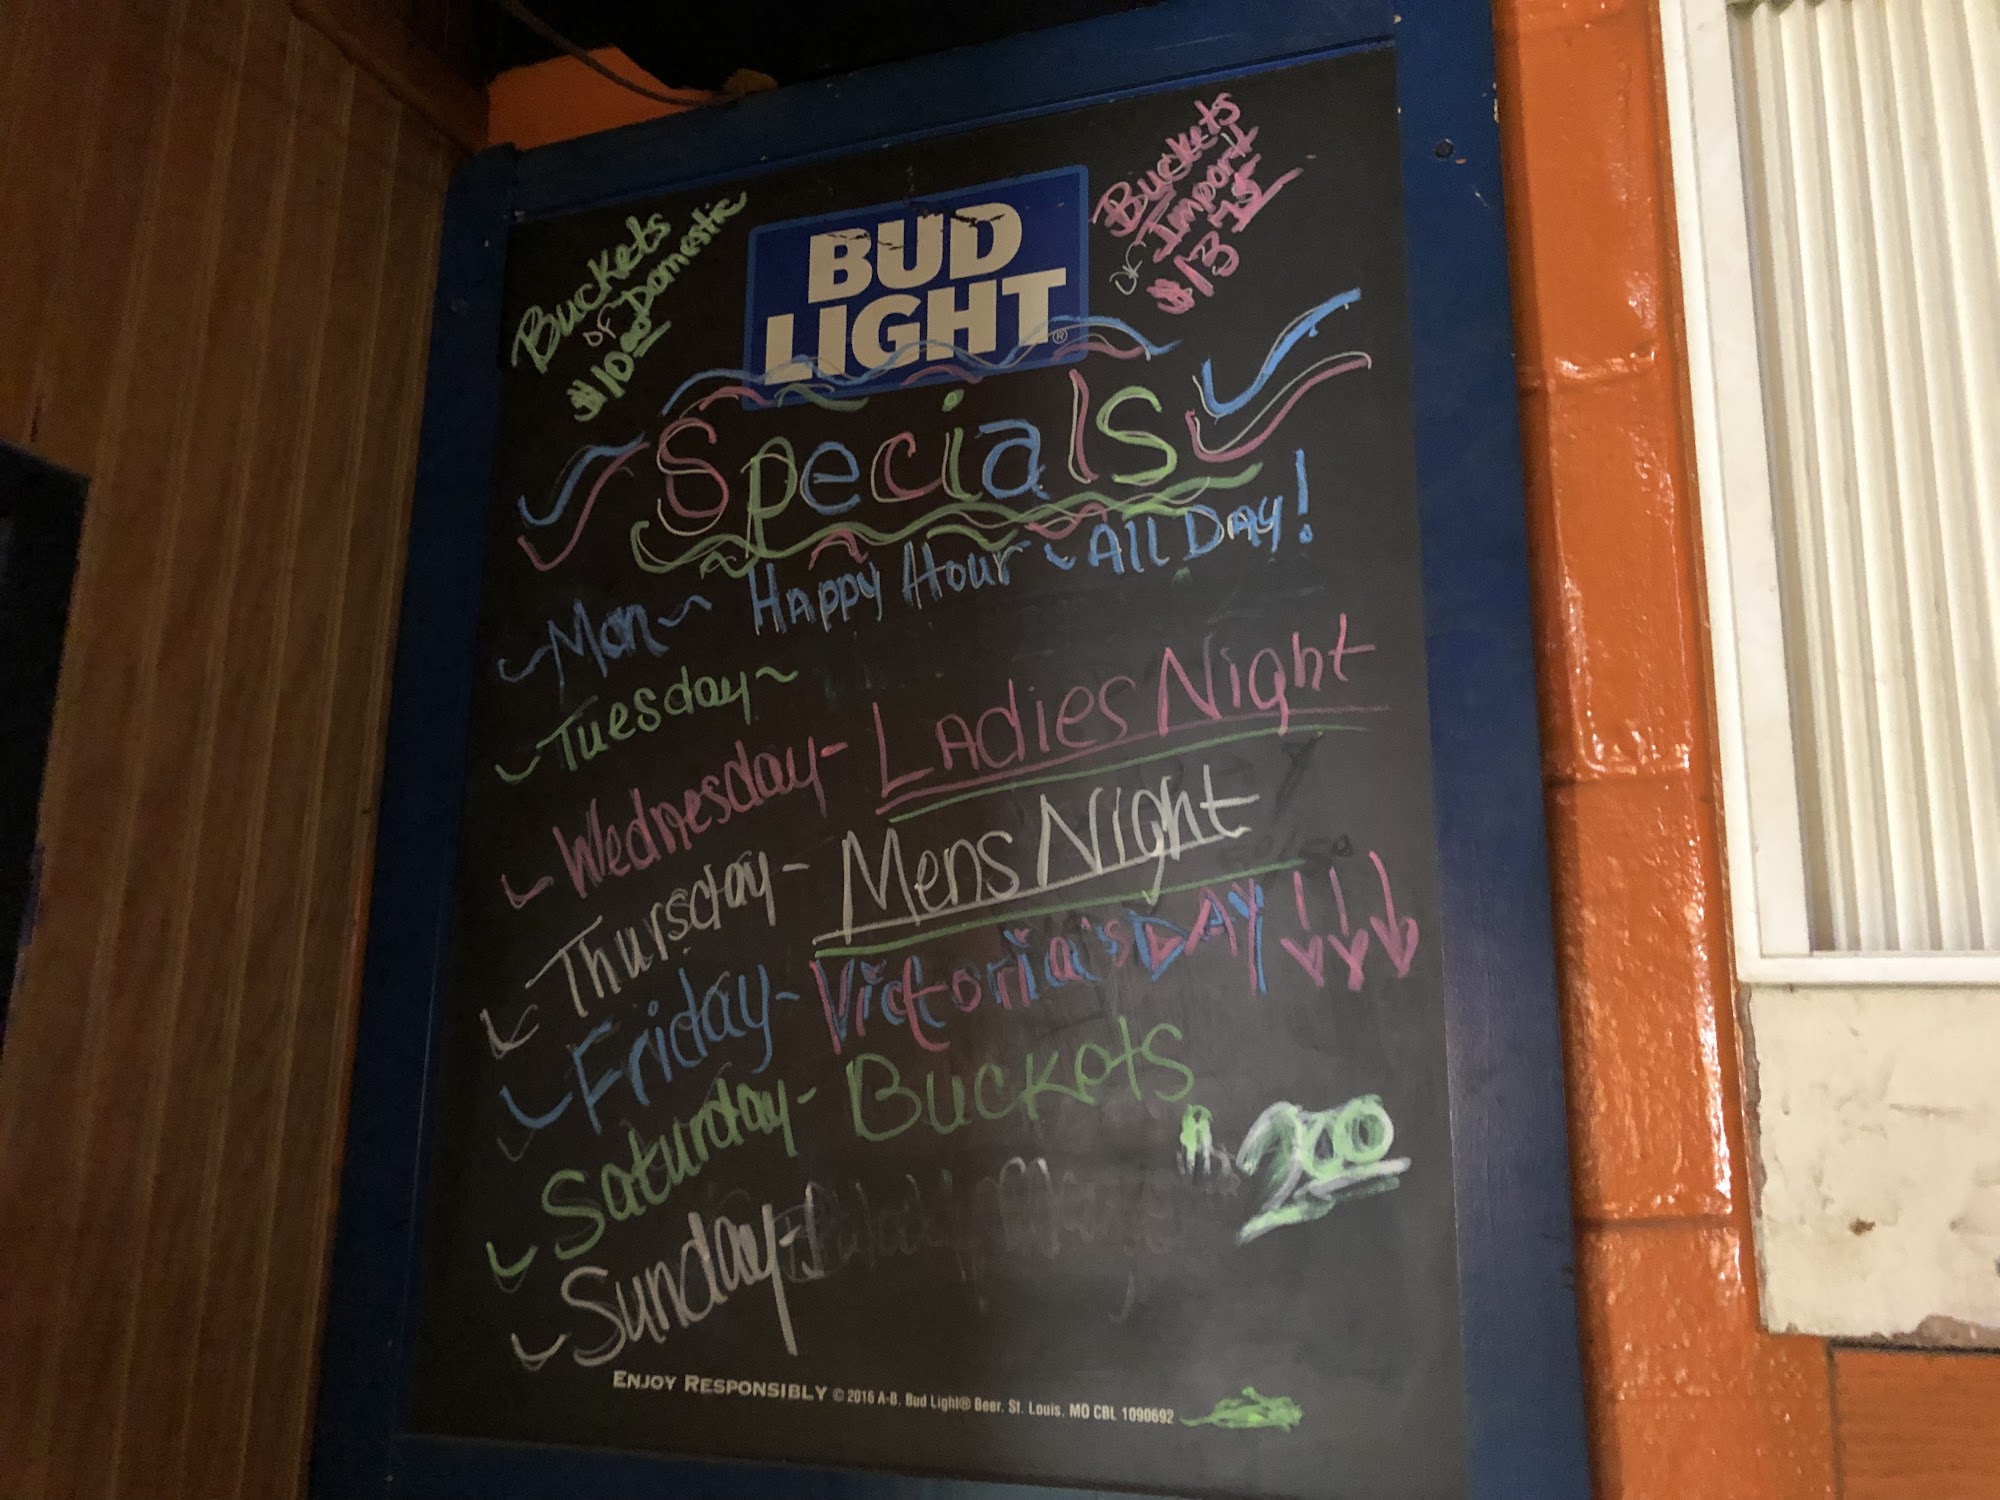 Buckets
of Domestic
$10.00
Buckets
of Import
$13.75
BUD
LIGHT®
Specials
Mon~ Happy Hour ~ All Day!
Tuesday~
Wednesday- Ladies Night
Thursday- Mens Night
Friday- Victoria's DAY !!!
Saturday- Buckets
Sunday-
ENJOY RESPONSIBLY © 2016 A-B, Bud Light® Beer, St. Louis, MO CBL 1090692